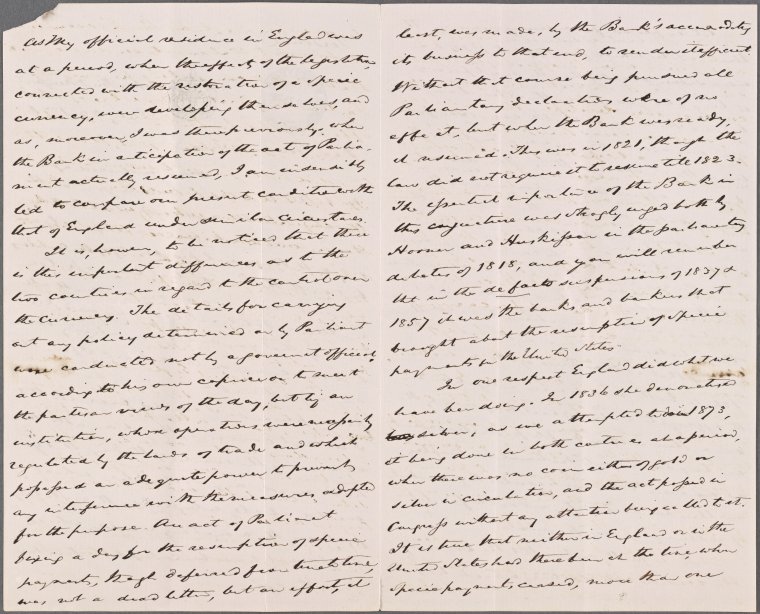 As my official residence in England was
at a period, when the effects of the legislation
connected with the restoration of a specie
currency, were developing themselves, and
as, moreover, I was there previously, when
the Bank in anticipation of the act of Parlia-
ment actually resumed, I am insensibly
led to compare our present condition with
that of England under similar circumstances.
It is, however, to be noticed that there
is this important difference, as to the
two countries in regard to the control over
the currency. The details for carrying
out any policy determined on by Parliament
were conducted not by a government official,
according to his own caprice or to meet
the partisan views of the day, but by an
institution, whose operations were necessarily
regulated by the laws of trade and which
possessed an adequate power to prevent
any interference with the measures adopted
for the purpose. An act of Parliament
fixing a day for the resumption of specie
payments, though deferred from time to time,
was not a dead letter, but an effort, at
least, was made, by the Bank's accommodating
its business to that end, to render it efficient.
Without that course being pursued all
Parliamentary declarations were of no
effect, but when the Bank was ready,
it resumed. This was in 1821, though the
law did not require it to resume till 1823.
The essential importance of the Bank in
this conjuncture was strongly urged both by
Horner and Huskisson in the parliamentary
debates of 1818, and you will remember
that in the de facto suspensions of 1837 &
1857 it was the banks and bankers that
brought about the resumption of specie
payments in the United States.
In one respect England did what we
have been doing. In 1836 she demonetized
silver, as we attempted to in 1873,
it being done in both countries at a period,
when there was no coin either of gold or
silver in circulation, and the act passed in
Congress without any attention being called to it.
It is true that neither in England or in the
United States had there been at the time when
specie payments ceased, more than one